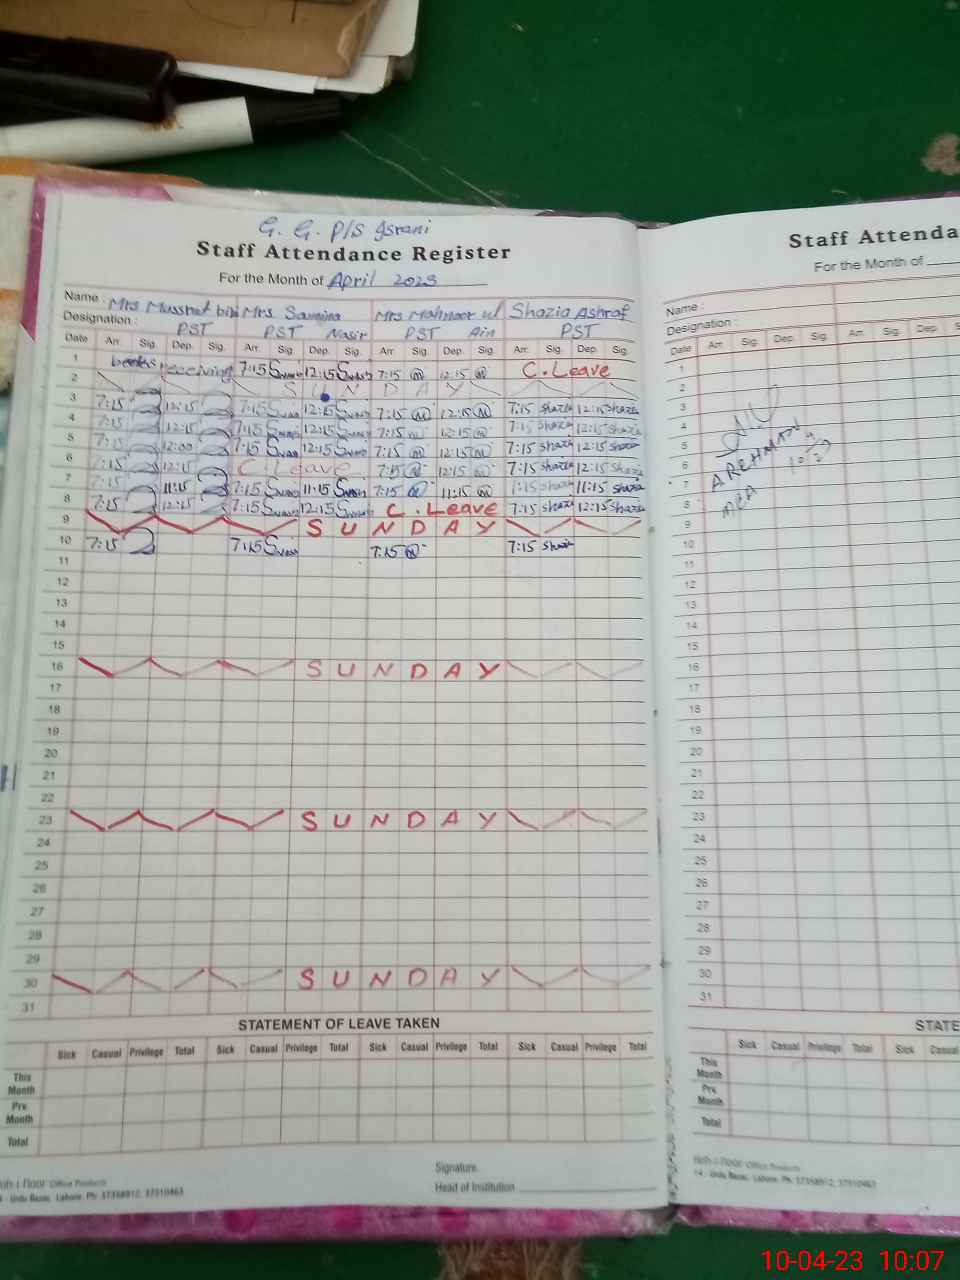 G. G. P/S Israni
Staff Attendance Register
For the Month of April 2023
Name : Mrs Mussrat bibi Mrs Samina Mrs Mahnoor ul Shazia Ashraf
Designation : PST PST Nasir PST Ain PST
Date Arr. Sig. Dep. Sig. Arr. Sig. Dep. Sig. Arr. Sig. Dep. Sig. Arr. Sig. Dep. Sig.
1 books receiving 7:15 12:15 7:15 12:15 C.Leave
2 SUNDAY
3 7:15 12:15 7:15 12:15 7:15 12:15 7:15 Shazia 12:15 Shazia
4 7:15 12:15 7:15 12:15 7:15 12:15 7:15 Shazia 12:15 Shazia
5 7:15 12:00 7:15 12:15 7:15 12:15 7:15 Shazia 12:15 Shazia
6 7:15 12:15 C Leave 7:15 12:15 7:15 Shazia 12:15 Shazia
7 7:15 11:15 7:15 11:15 7:15 11:15 Shazia 11:15 Shazia
8 7:15 12:15 7:15 12:15 C.Leave 7:15 Shazia 12:15 Shazia
9 SUNDAY
10 7:15 7:15 7:15 7:15 Shazia
11
12
13
14
15
16 SUNDAY
17
18
19
20
21
22
23 SUNDAY
24
25
26
27
28
29
30 SUNDAY
31
STATEMENT OF LEAVE TAKEN
Sick Casual Privilege Total Sick Casual Privilege Total Sick Casual Privilege Total Sick Casual Privilege Total
This Month
Prv Month
Total
Signature.
Head of Institution
Office Products
Urdu Bazar, Lahore. Ph: 37358912, 37310463
Staff Attenda
For the Month of
Name :
Designation :
Date Arr. Sig. Dep. Sig. Arr. Sig. Dep. S
1
2
3
4
5
6
7
8
9
10
11
12
13
14
15
16
17
18
19
20
21
22
23
24
25
26
27
28
29
30
31
STATE
Sick Casual Privilege Total Sick Casual
This Month
Prv Month
Total
Office Products
14 - Urdu Bazar, Lahore. Ph: 37358912, 37310463
10-04-23 10:07